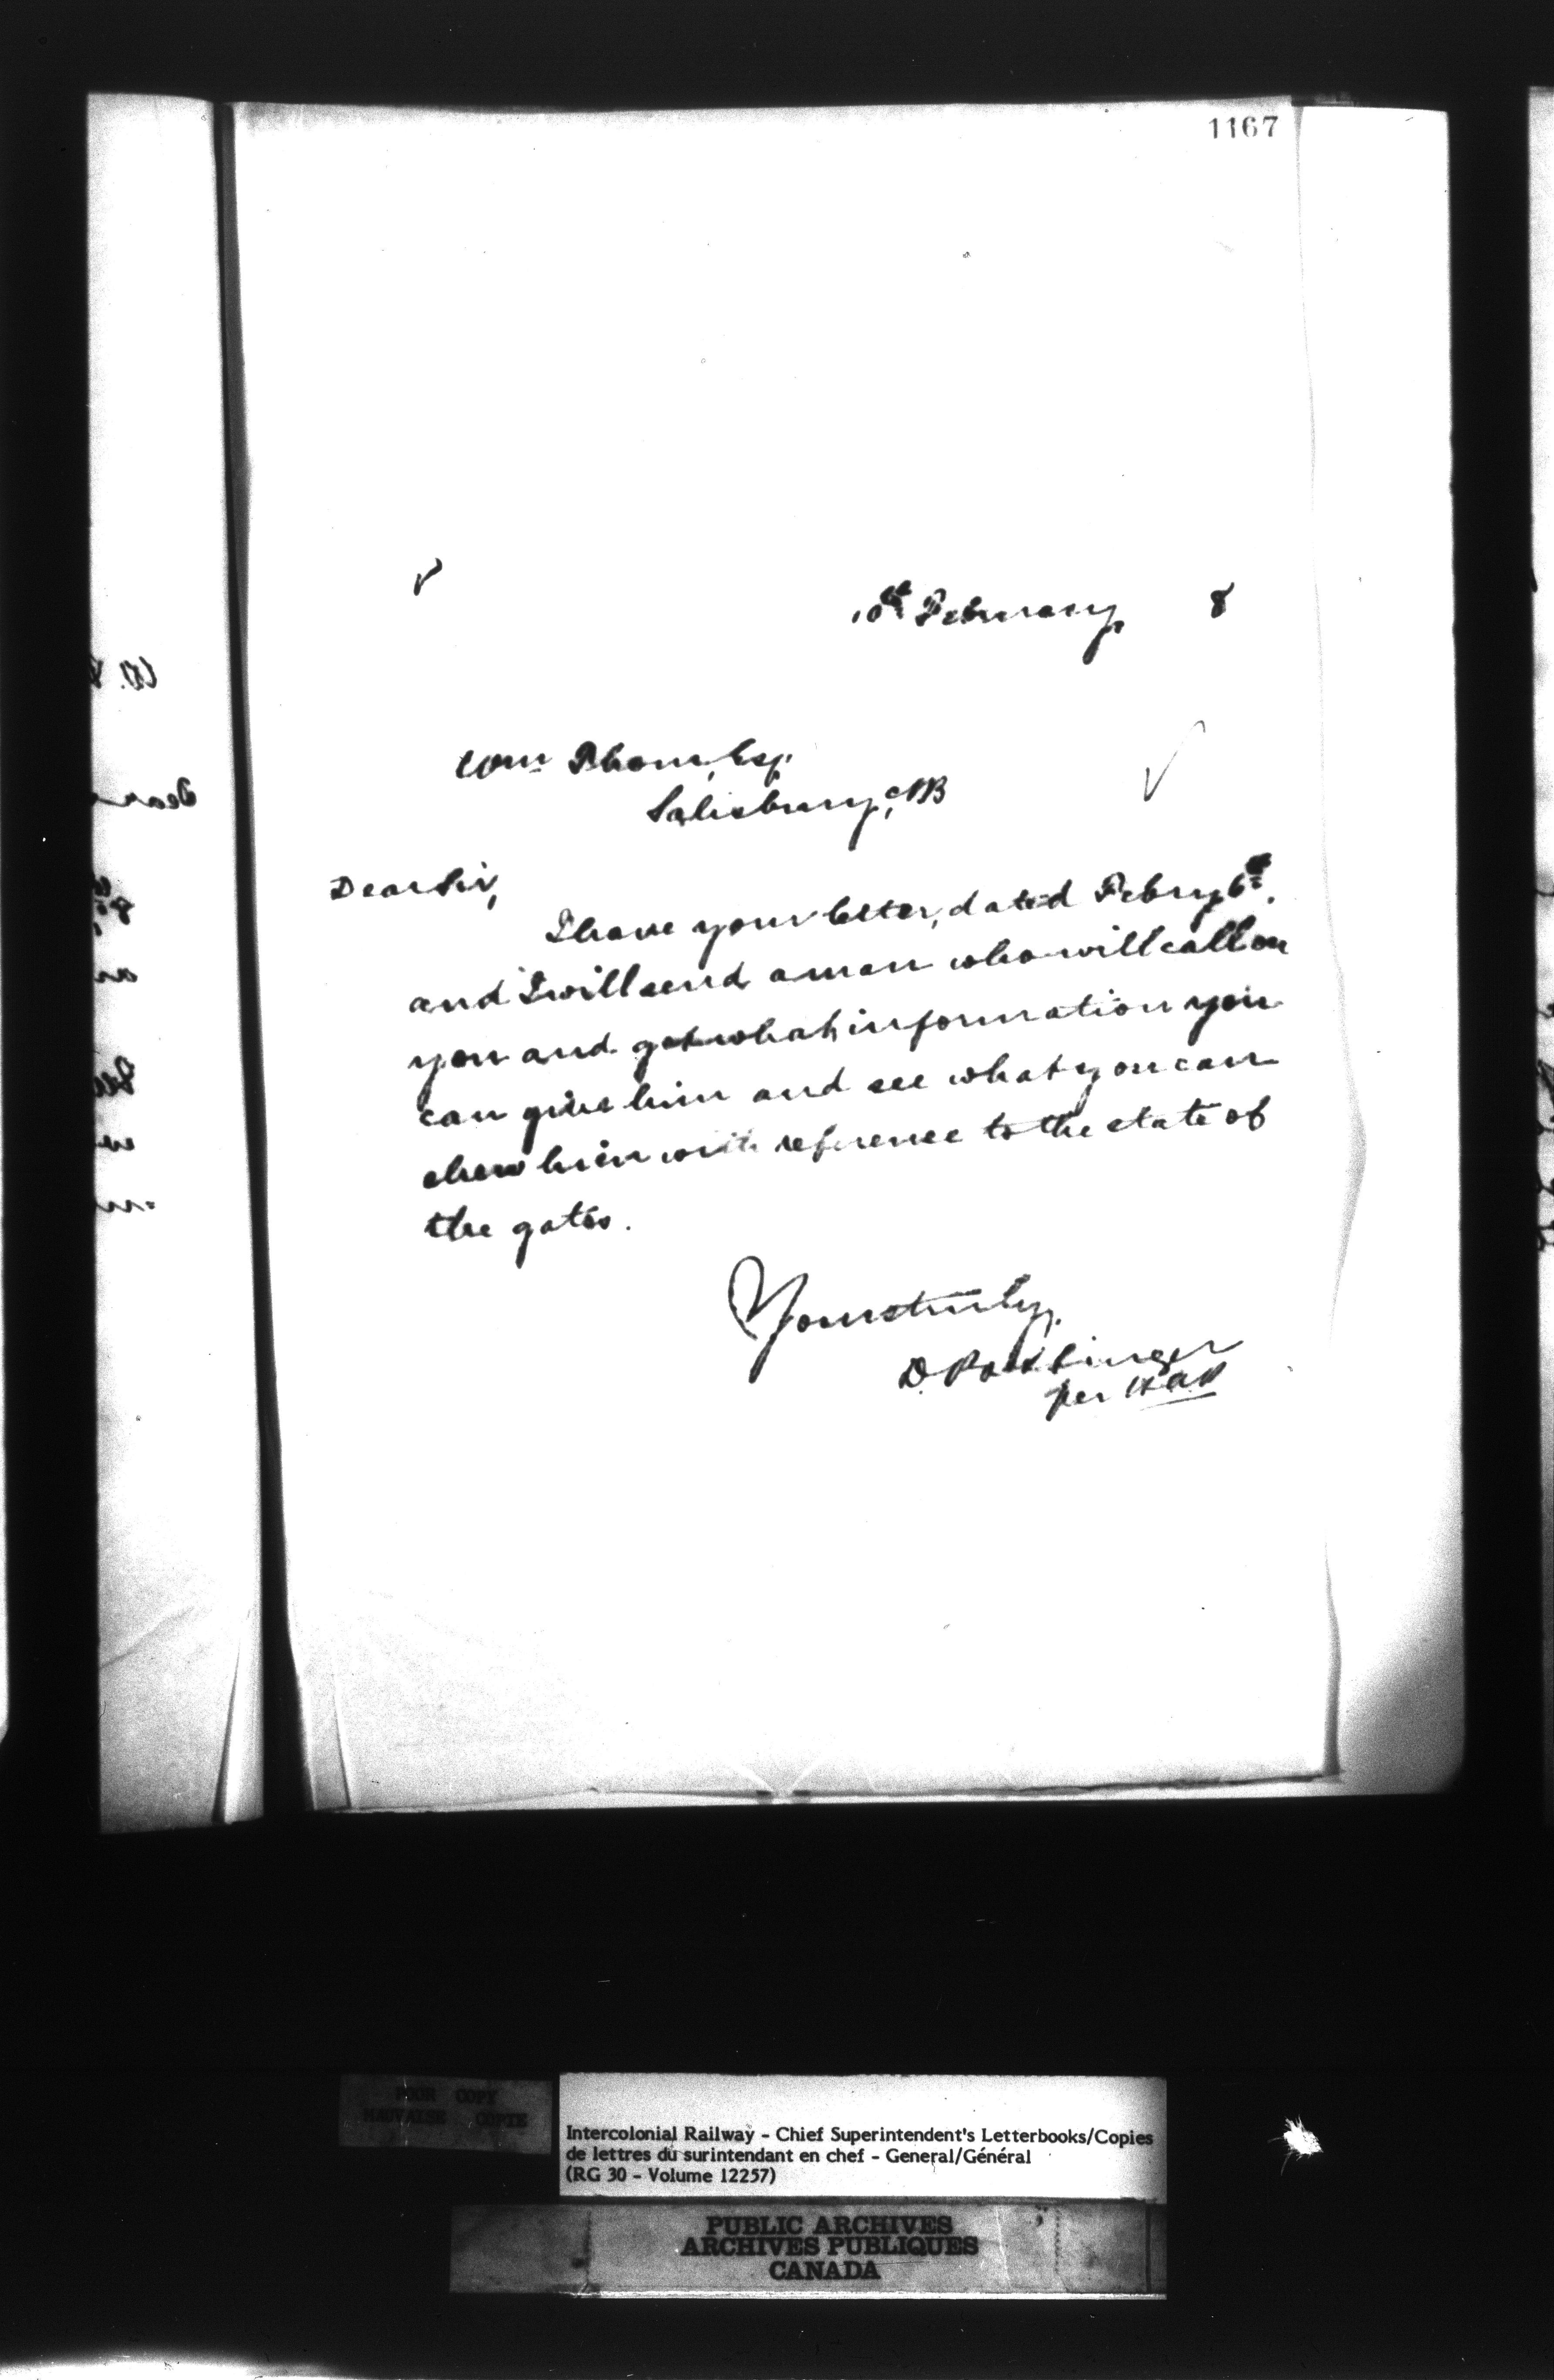 1167
10th February 8
Wm Esq.
Salisbury, NB
Dear Sir,
I have your letter, dated Febry 6th,
and I will send a man who will call on
you and get what information you
can give him and see what you can
shew him with reference to the state of
the gates.
Yours truly,
D. Pottinger
per
POOR COPY
MAUVAISE COPIE
Intercolonial Railway - Chief Superintendent's Letterbooks/Copies
de lettres du surintendant en chef - General/Général
(RG 30 - Volume 12257)
PUBLIC ARCHIVES
ARCHIVES PUBLIQUES
CANADA